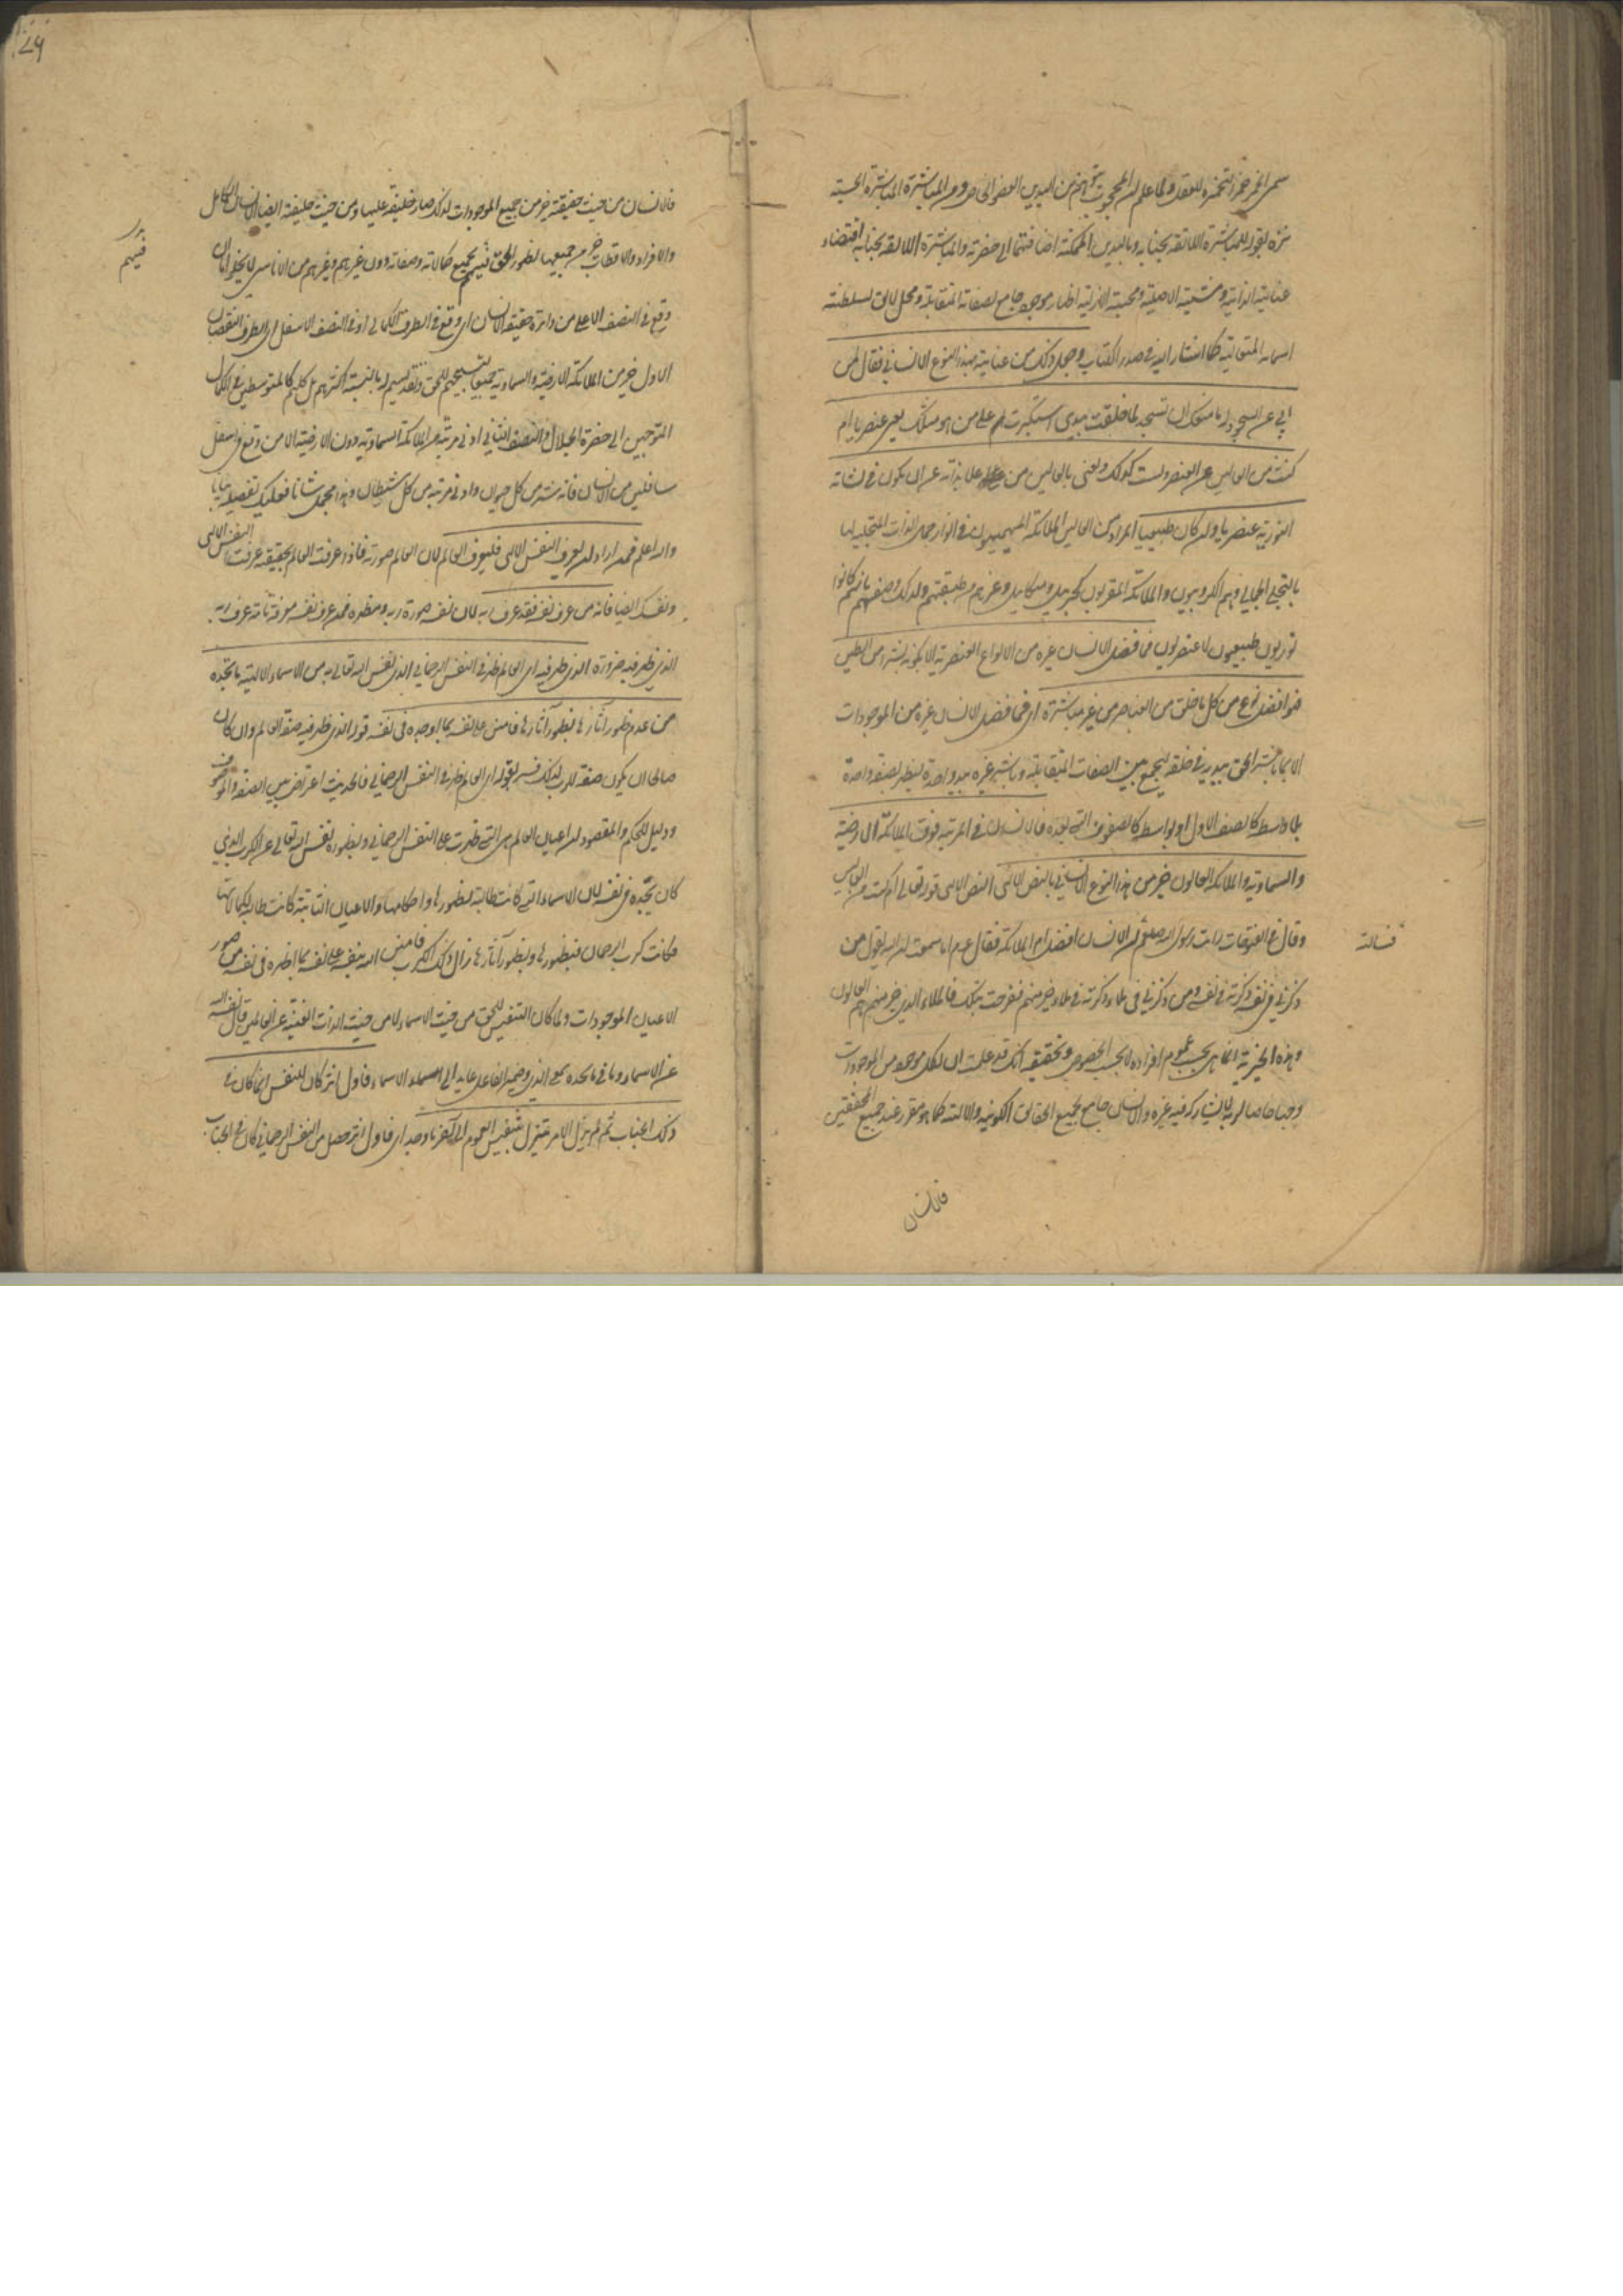 نزه بقوله المباشرة اللائقة بجنابه وباليدين الممكنة اضافتهما الى حضرته والمباشرة اللائقة بجنابه اقتضاء
عنايته الذاتية ومشيته الاصلية ومحبته الازلية اظهار موجود جامع لصفاته المتقابلة ومحل لائق لسلطنة
اسمائه المتعالية كما اشار اليه في صدر الكتاب وجعل ذلك من عنايته بهذا النوع الانساني فقال لمن
ابى عن السجود له ما منعك ان تسجد لما خلقت بيدي استكبرت ام على من هو مثلك يعني عنصريا ام
كنت من العالين عن العنصر ولست كذلك ونعني بالعالين من علا بذاته عن ان يكون في نشأته
النورية عنصريا ولو كان طبيعيا المراد من العالين الملائكة المهيمون في انوار جمال الذات المتجلية لها
بالتجلي الجمالي وهم الكروبيون والملائكة المقربون كجبريل وميكائيل وغيرهم من طبقتهم ولذلك وصفهم بانهم كانوا
نوريون طبيعيون لا عنصريون فما فضل الانسان غيره من الانواع العنصرية الا بكونه بشرا من الطين
فهو افضل نوع من كل ما خلق من العناصر من غير مباشرة اي فما فضل الانسان غيره من الموجودات
الا بما باشر الحق بيديه في خلقه ليجمع بين الصفات المتقابلة وباشر غيره بيد واحدة ليظهر بصفة واحدة
بلا واسطة كالصنف الاول او بواسطة كالصنوف التي بعده فالانسان في المرتبة فوق الملائكة الارضية
والسماوية والملائكة العالون خير من هذا النوع الانساني بالنص الالهي النص الالهي قوله تعالى ام كنت من العالين
وقال في الفتوحات رايت رسول الله صلعم
فسالته
ان الانسان افضل ام الملائكة فقال عم اما سمعت ان الله يقول من
ذكرني في نفسه ذكرته في نفسي ومن ذكرني في ملاء ذكرته في ملاء خير منهم ففرحت بذلك فالملاء الذين خير منهم هم العالون
وهذه الخيرية انما هي بحسب عموم افراده لا بحسب الخصوص وتحقيقه انك قد علمت ان لكل موجود من الموجودات
وجها خاصا لربه لا يشاركه فيه غيره والانسان جامع لجميع الحقائق الكونية والالهية كما هو مقرر عند جميع المحققين
فالانسان
فالانسان من حيث حقيقته خير من جميع الموجودات لذلك صار خليفة عليها ومن حيث خليفته ايضا الانسان الكامل
والافراد والاقطاب خير من جميعها لظهور الحق فيهم بجميع كمالاته وصفاته دون غيرهم وغيرهم من الاناسي لا يخلو اما ان
فيهم
وقع في النصف الاعلى من دائرة حقيقة الانسان اي وقع في الطرف الكمالي او في النصف الاسفل اي الطرف النقصان
الاول خير من الملائكة الارضية والسماوية جميعا لتسبيحهم للحق وتقديسهم له بالنسبة اكثرهم بل كلهم كالمتوسطين في الكمال
المتوجهين الى حضرة الجلال والنصف الثاني ادنى مرتبة من الملائكة السماوية دون الارضية الا من وقع في اسفل
سافلين من الانسان فانه شر من كل حيوان وادنى مرتبة من كل شيطان وهذا مجمل
والله اعلم فمن اراد ان يعرف النفس الالهي فليعرف العالم لان العالم صورته فاذا عرفت العالم بحقيقته عرفت النفس الالهي
ونفسك ايضا فانه من عرف نفسه فقد عرف ربه لان نفسه صورة ربه ومظهره فمن عرف نفسه معرفة تامة عرف ربه
الذي ظهر فيه اي العالم ظهر في النفس الرحماني الذي نفس الله تعالى به من الاسماء الالهية ما تجده
من عدم ظهور آثارها بظهور آثارها فامتن على نفسه بما اوجده في نفسه قوله الذي ظهر فيه صفة العالم وان كان
صالحا ان يكون صفة للرب لذلك فسر بقوله اي العالم ظهر في النفس الرحماني فالحديث اعتراض بين الصفة والموصوف
ودليل للحكم والمقصود ان اعيان العالم هي التي ظهرت على النفس الرحماني وبظهوره نفس الله تعالى عن الكرب الذي
كان تجده في نفسه لان الاسماء التي كانت طالبة لظهورها واحكامها والاعيان الثابتة كانت طالبة لكمالاتها
فكانت كرب الرحمان فبظهورها وبظهور آثارها زال ذلك الكرب فامتن الله بنفسه على نفسه بما اظهره في نفسه من صور
الاعيان الموجودات ولما كان التنفيس للحق من حيث الاسماء لا من حيث الذات الغنية عن العالمين قال نفس الله
عن الاسماء وما في ما تجده بمعنى الذي وضمير الفاعل عائد الى الاسماء فاول اثر كان للنفس انما كان في
ذلك الجناب ثم لم يزل الامر يتنزل بتنفيس العموم الى آخر ما وجد اي فاول اثر حصل من النفس الرحماني كان في الجناب